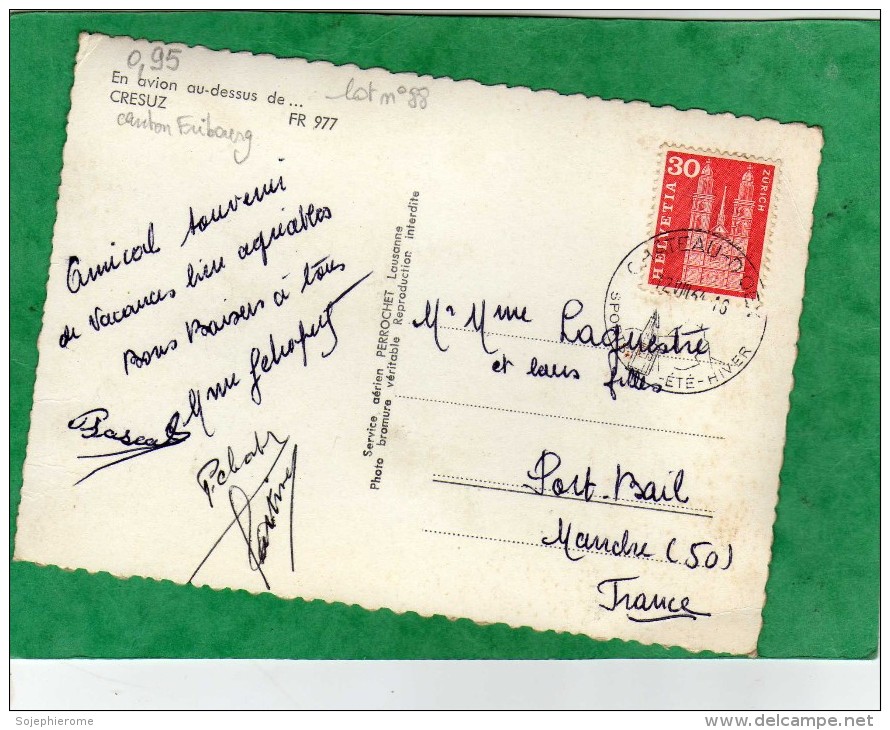 0,95
En avion au-dessus de ...
CRESUZ
FR 977
lot n° 88
canton Fribourg
Amical souvenir
de Vacances bien agréables
Bons Baisers à tous
Mme
Pascal
Service aérien PERROCHET Lausanne
Photo bromure véritable Reproduction interdite
30
HELVETIA
ZÜRICH
CHATEAU-D'OEX
ÉTÉ-HIVER
Mr Mme Laquestre
et leurs filles
Port-Bail
Manche (50)
France
Sojephierome
delcampe.net